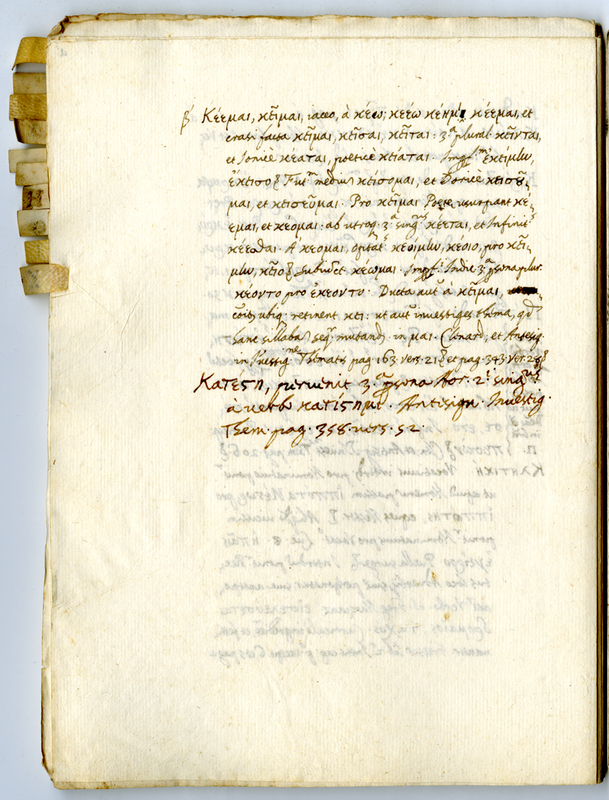 β Κέεμαι, κεῖμαι, iaceo, à κέω, κεέω κέημι κέεμαι, et
crasi facta κεῖμαι, κεῖσαι, κεῖται. 3.ª plural. κεῖνται,
et Ionicè κέαται, poeticè κείαται. Impf.m ἐκείμην,
ἔκεισο. Fut. medium κείσομαι, et Doricè κεισοῦ-
μαι, et κεισεῦμαι. Pro κεῖμαι Poetæ usurpant κέ-
εμαι, et κέομαι. ab utroq. 3.ª sing. κέεται, et Infinit.
κέεσθαι. A κέομαι, optat. κεοίμην, κέοιο, pro κεῖ-
μην, κεῖο. Subiunct. κέωμαι. Impf. Indic. 3.ª persona plur.
κέοντο pro ἐκέοντο. Ducta aut. à κεῖμαι,
ubiq. retinent κει: ut aut investiges thema, qd
hanc sillabam seq. mutand. in μαι. Clenard. et Antesig.
in Investig.ne Thematis pag. 163. vers. 21. et pag. 343. ver. 28.
Κατέστη, pervenit 3.ª persona Aor. 2.i sing.ris
à verbo κατίστημι. Antisign. Investig.
Them. pag. 358. vers. 52.